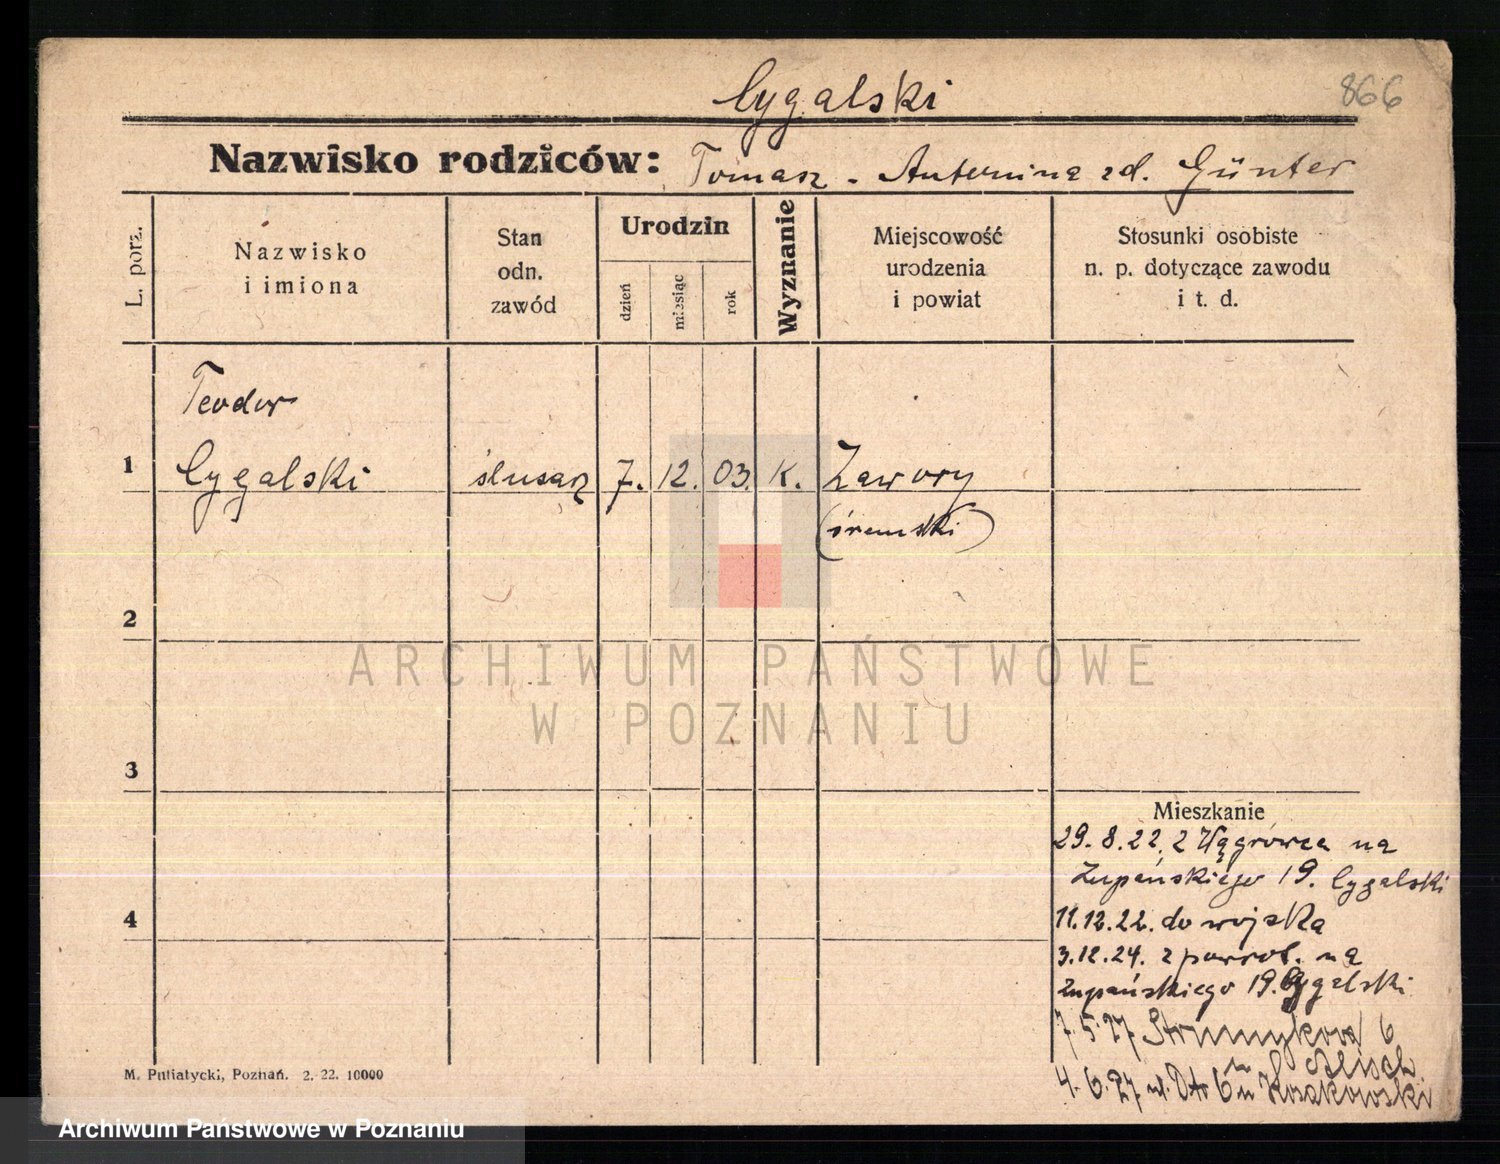 Cygalski
866
Nazwisko rodziców: Tomasz - Antonina zd. Günter
L. porz.
Nazwisko
i imiona
Stan
odn.
zawód
Urodzin
dzień
miesiąc
rok
Wyznanie
Miejscowość
urodzenia
i powiat
Stosunki osobiste
n. p. dotyczące zawodu
i t. d.
Teodor
1 Cygalski ślusarz 7. 12. 03. K. Zawory
(śremski)
2
3
Mieszkanie
29. 8. 22. z Wągrówca na
Żupańskiego 19. Cygalski
4
11.12.22. do wojska
3.12.24. z powrot. na
Żupańskiego 19. Cygalski
7. 5. 27 Strumykowa 6
4. 6. 27 6 u Kosakowski
M. Putiatycki, Poznań. 2. 22. 10000
ARCHIWUM PAŃSTWOWE
W POZNANIU
Archiwum Państwowe w Poznaniu